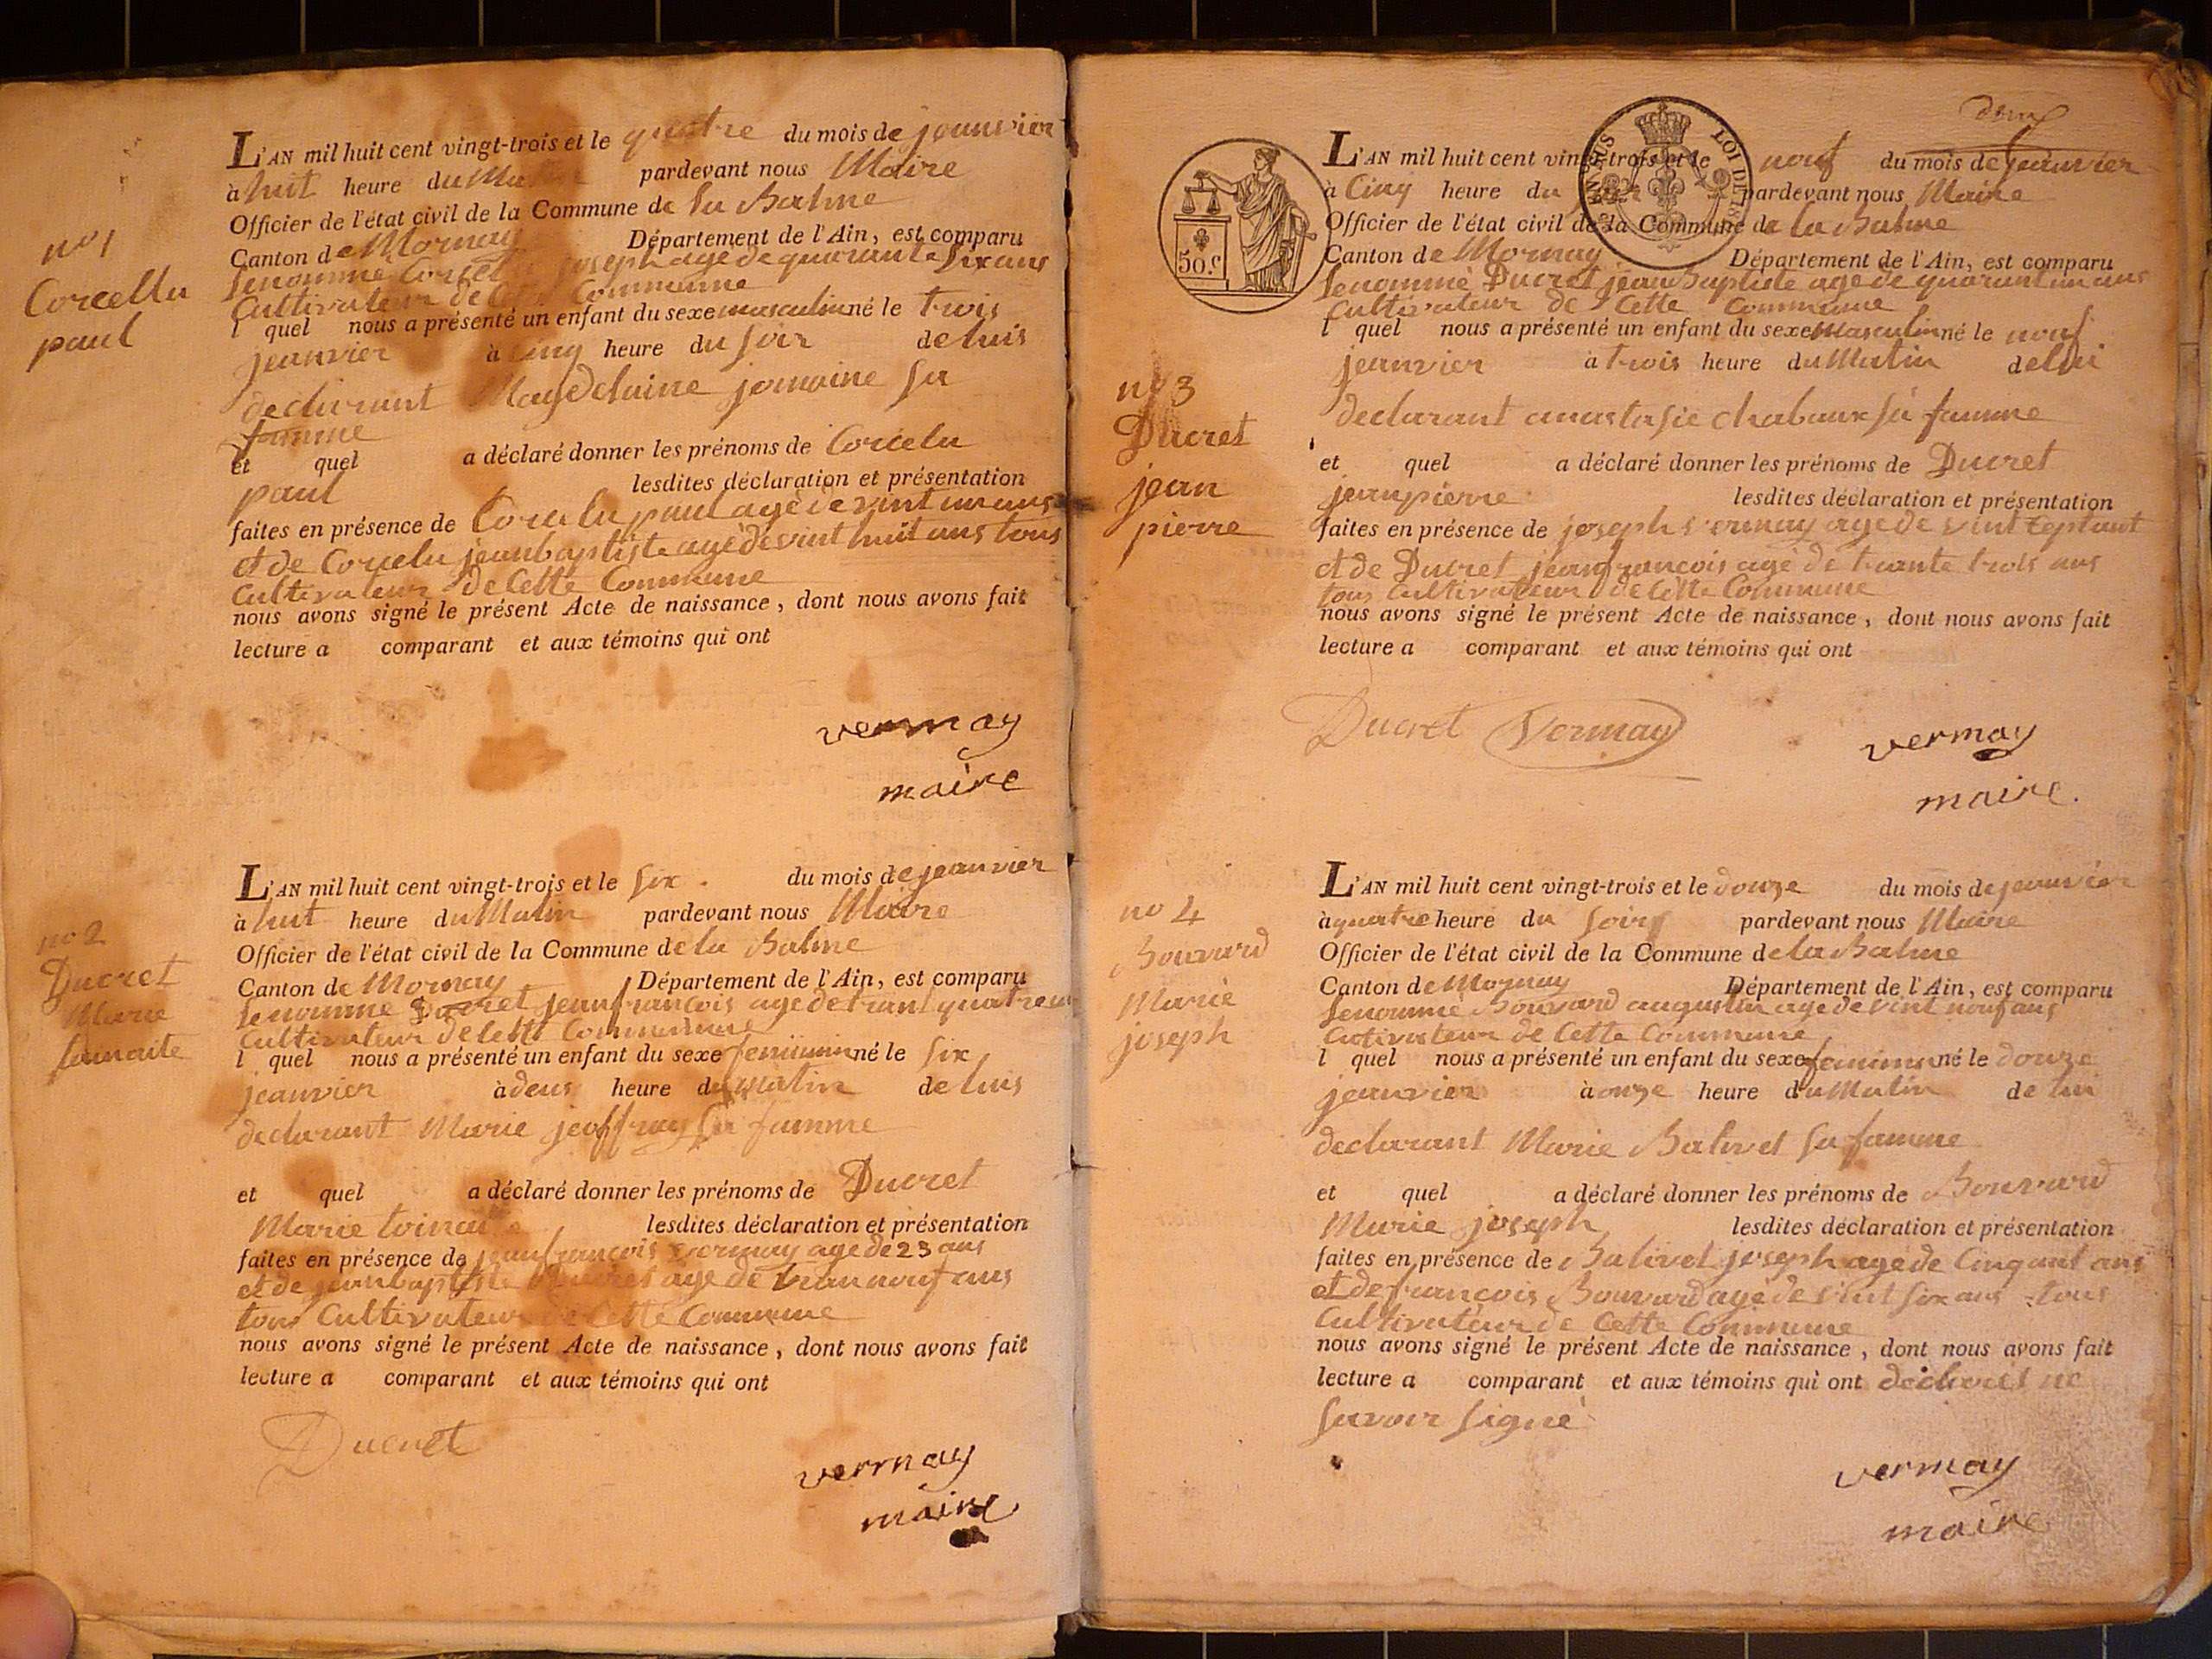 L'AN mil huit cent vingt-trois et le quatre du mois de jeanvier
à huit heure du Matin pardevant nous Maire
Officier de l'état civil de la Commune de la Balme
Canton de Mornay Département de l'Ain, est comparu
lenommé joseph agé de quarante six ans
Cultivateur de Cette Commune
l quel nous a présenté un enfant du sexe masculin né le trois
jeanvier à Cinq heure du soir de luis
declarant Magdelaine jomaine sa
famme
et quel a déclaré donner les prénoms de Corcelu
paul lesdites déclaration et présentation
faites en présence de Corcelu paul agé de vint un ans
et de Corcelu jeanbaptiste agé de vint huit ans tous
Cultivateur de Cette Commune
nous avons signé le présent Acte de naissance, dont nous avons fait
lecture a comparant et aux témoins qui ont
vermay
maire
no 1
Corcellu
paul
L'AN mil huit cent vingt-trois et le six du mois de jeanvier
à huit heure du Matin pardevant nous Maire
Officier de l'état civil de la Commune de la Balme
Canton de Mornay Département de l'Ain, est comparu
lenomme Ducret jeanfrancois age de trant quatre
Cultivateur de Cette Commune
l quel nous a présenté un enfant du sexe feminin né le six
jeanvier à deus heure du Matin de luis
declarant Marie jeoffray sa famme
et quel a déclaré donner les prénoms de Ducret
Marie lesdites déclaration et présentation
faites en présence de jeanfrancois vermay age de 23 ans
et de jeanbaptiste Ducret age de tran nouf ans
tous Cultivateur de Cette Commune
nous avons signé le présent Acte de naissance, dont nous avons fait
lecture a comparant et aux témoins qui ont
Ducret
vermay
maire
no 2
Ducret
Marie
L'AN mil huit cent vingt-trois et le nouf du mois de jeanvier
à Cinq heure du pardevant nous Maire
Officier de l'état civil de la Commune de la Balme
Canton de Mornay Département de l'Ain, est comparu
lenommé Ducret jeanBaptiste age de quarant un ans
Cultivateur de Cette Commune
l quel nous a présenté un enfant du sexe masculin né le nouf
jeanvier à trois heure du Matin de lui
declarant anastasie chabaux sa famme
et quel a déclaré donner les prénoms de Ducret
jeanpierre lesdites déclaration et présentation
faites en présence de joseph vermay age de vint
et de Ducret jeanfrancois agé de trante trois ans
tous Cultivateur de Cette Commune
nous avons signé le présent Acte de naissance, dont nous avons fait
lecture a comparant et aux témoins qui ont
Ducret Vermay
vermay
maire.
50.c
LOI DE
no 3
Ducret
jean
pierre
L'AN mil huit cent vingt-trois et le douze du mois de jeanvier
à quatre heure du soir pardevant nous Maire
Officier de l'état civil de la Commune de la Balme
Canton de Mornay Département de l'Ain, est comparu
lenommé Bouvard augustin age de vint nouf ans
Cutivateur de Cette Commune
l quel nous a présenté un enfant du sexe feminin né le douze
jeanvier à onze heure du Matin de lui
declarant Marie Balivet sa famme
et quel a déclaré donner les prénoms de Bouvard
Marie joseph lesdites déclaration et présentation
faites en présence de Balivet joseph agé de Cinquant ans
et de francois Bouvard agé de vint six ans tous
Cultivateur de Cette Commune
nous avons signé le présent Acte de naissance, dont nous avons fait
lecture a comparant et aux témoins qui ont ne
savoir signé
vermay
maire
no 4
Bouvard
Marie
joseph